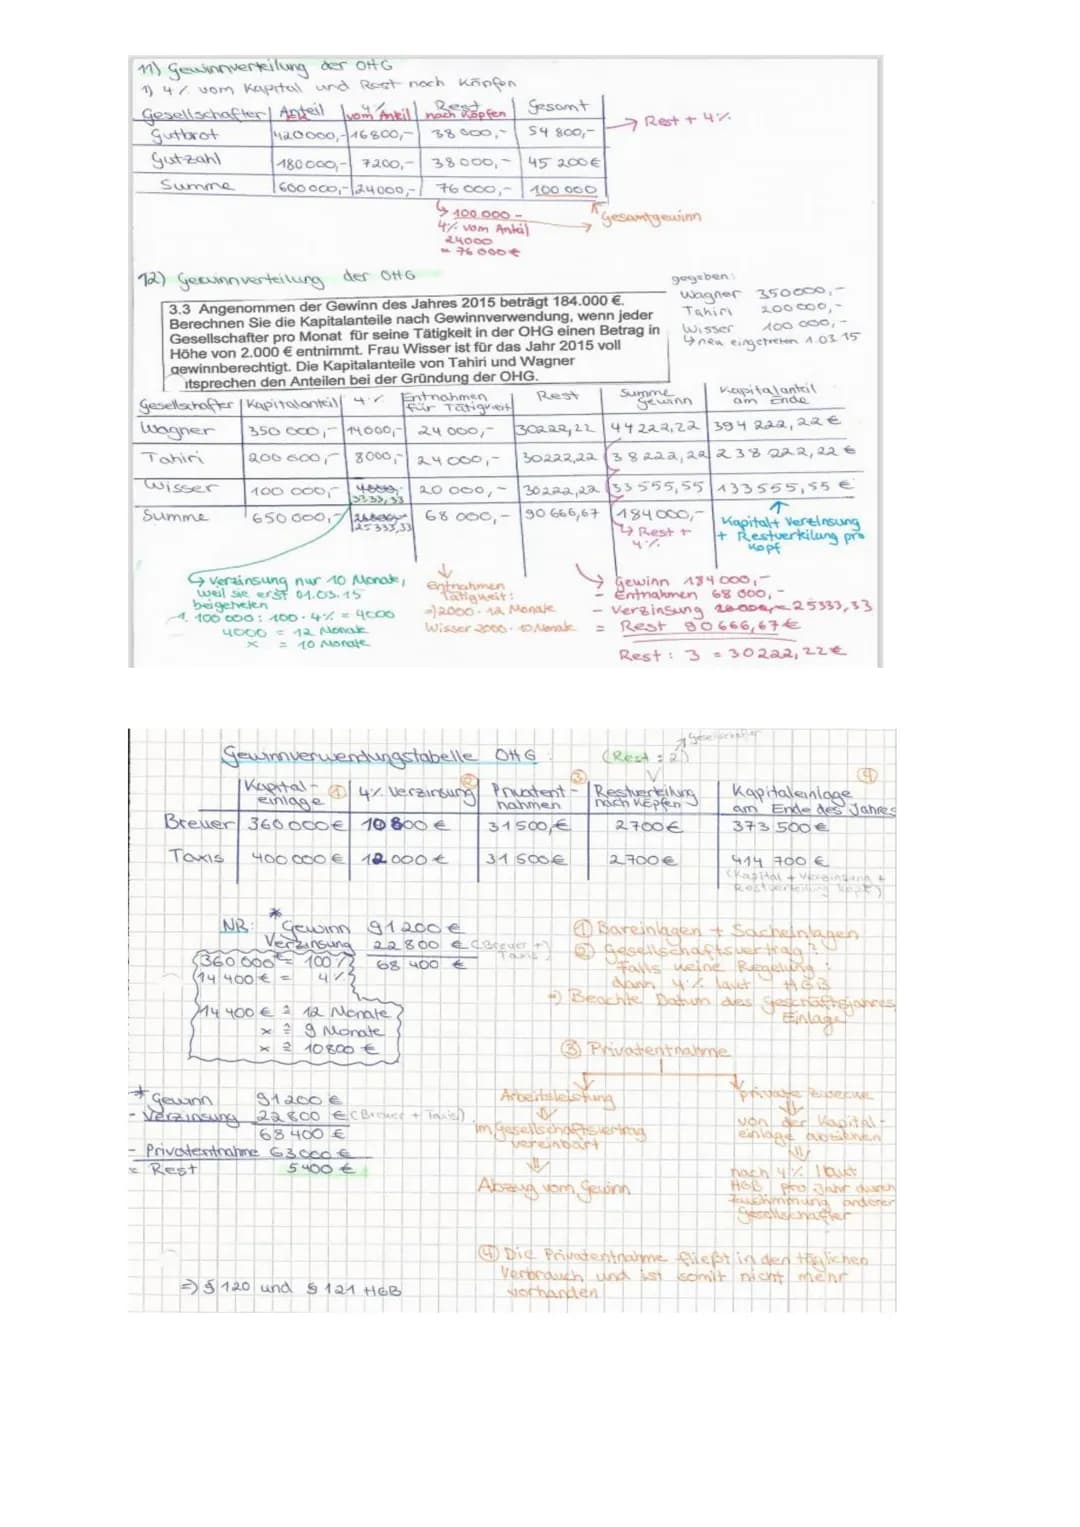 11) Gewinnverteilung der OHG
1) 4% vom Kapital und Rest nach Köpfen
Gesellschafter | Anteil | 4% vom Anteil | Rest nach Köpfen | Gesamt
Gutbrot | 420000,- | 16800,- | 38000,- | 54 800,-
→ Rest + 4%
Gutzahl | 180000,- | 7200,- | 38000,- | 45 200€
Summe | 600 000,- | 24000,- | 76 000,- | 100 000
↳ 100 000 -
4% vom Anteil
24000
= 76 000€
→ Gesamtgewinn
12) Gewinnverteilung der OHG
gegeben:
Wagner 350000,-
Tahiri 200000,-
Wisser 100 000,-
↳ neu eingetreten 1.03.15
3.3 Angenommen der Gewinn des Jahres 2015 beträgt 184.000 €.
Berechnen Sie die Kapitalanteile nach Gewinnverwendung, wenn jeder
Gesellschafter pro Monat für seine Tätigkeit in der OHG einen Betrag in
Höhe von 2.000 € entnimmt. Frau Wisser ist für das Jahr 2015 voll
gewinnberechtigt. Die Kapitalanteile von Tahiri und Wagner
itsprechen den Anteilen bei der Gründung der OHG.
Gesellschafter | Kapitalanteil | 4% | Entnahmen für Tätigkeit | Rest | Summe Gewinn | Kapitalanteil am Ende
Wagner | 350 000,- | 14000,- | 24 000,- | 30222,22 | 44222,22 | 394 222,22 €
Tahiri | 200 000,- | 8000,- | 24 000,- | 30222,22 | 38222,22 | 238 222,22 €
Wisser | 100 000,- | 4000,- 3333,33 | 20 000,- | 30222,22 | 33555,55 | 133555,55 €
Summe | 650 000,- | 25333,33 | 68 000,- | 90 666,67 | 184000,-
↳ Rest +
4%
↑
Kapital + Verzinsung
+ Restverteilung pro
Kopf
↳ Verzinsung nur 10 Monate,
weil sie erst 01.03.15
beigetreten
1. 100 000 : 100 · 4% = 4000
4000 = 12 Monate
x = 10 Monate
↓
Entnahmen
Tätigkeit:
=) 2000 · 12 Monate
Wisser 2000 · 10 Monate
→ Gewinn 184 000,-
- Entnahmen 68 000,-
- Verzinsung 25333,33
= Rest 90 666,67€
Rest : 3 = 30222,22€
Gewinnverwendungstabelle OHG
(Rest : 2)
Gesellschafter
Kapital-einlage ① | 4% Verzinsung ② | Privatent-nahmen ③ | Restverteilung nach Köpfen | Kapitaleinlage am Ende des Jahres ④
Breuer | 360 000€ | 10 800 € | 31 500,€ | 2700€ | 373 500 €
Taxis | 400 000€ | 12 000 € | 31 500€ | 2700€ | 414 700 €
(Kapital + Verzinsung +
Restverteilung Kopf)
NR: * Gewinn 91 200 €
Verzinsung 22 800 € (Breuer + Taxis)
68 400 €
360 000 € = 100%
14 400 € = 4%
14 400 € ≙ 12 Monate
x ≙ 9 Monate
x ≙ 10800 €
* Gewinn 91 200 €
- Verzinsung 22 800 € (Breuer + Taxis)
68 400 €
- Privatentnahme 63 000 €
= Rest 5 400 €
=) § 120 und § 121 HGB
① Bareinlagen + Sacheinlagen
② Gesellschaftsvertrag?
Falls keine Regelung:
dann 4% laut HGB
=) Beachte Datum des Geschäftsjahres
Einlage
③ Privatentnahme
Arbeitsleistung
im Gesellschaftsvertrag
vereinbart
Abzug vom Gewinn
private Zwecke
von der Kapital-
einlage abziehen
nach 4% laut
HGB pro Jahr durch
Zustimmung anderer
Gesellschafter
④ Die Privatentnahme fließt in den täglichen
Verbrauch und ist somit nicht mehr
vorhanden